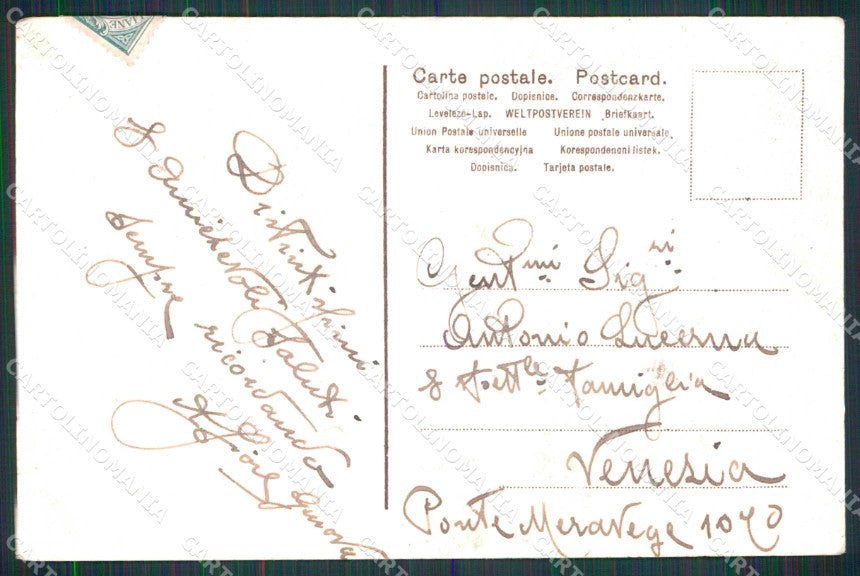 Carte postale. Postcard.
Cartolina postale. Dopisnice. Correspondenzkarte.
Levelezö-Lap. WELTPOSTVEREIN Briefkaart.
Union Postale universelle Unione postale universale.
Karta korespondencyjna Korespondenčni listek.
Dopisnica. Tarjeta postale.
Distintissimi
& amichevoli saluti
sempre ricordando
Genova
Gent.mi Sig.ri
Antonio Lucerna
& Spett.le Famiglia
Venezia
Ponte Meravege 1070
CARTOLINOMANIA